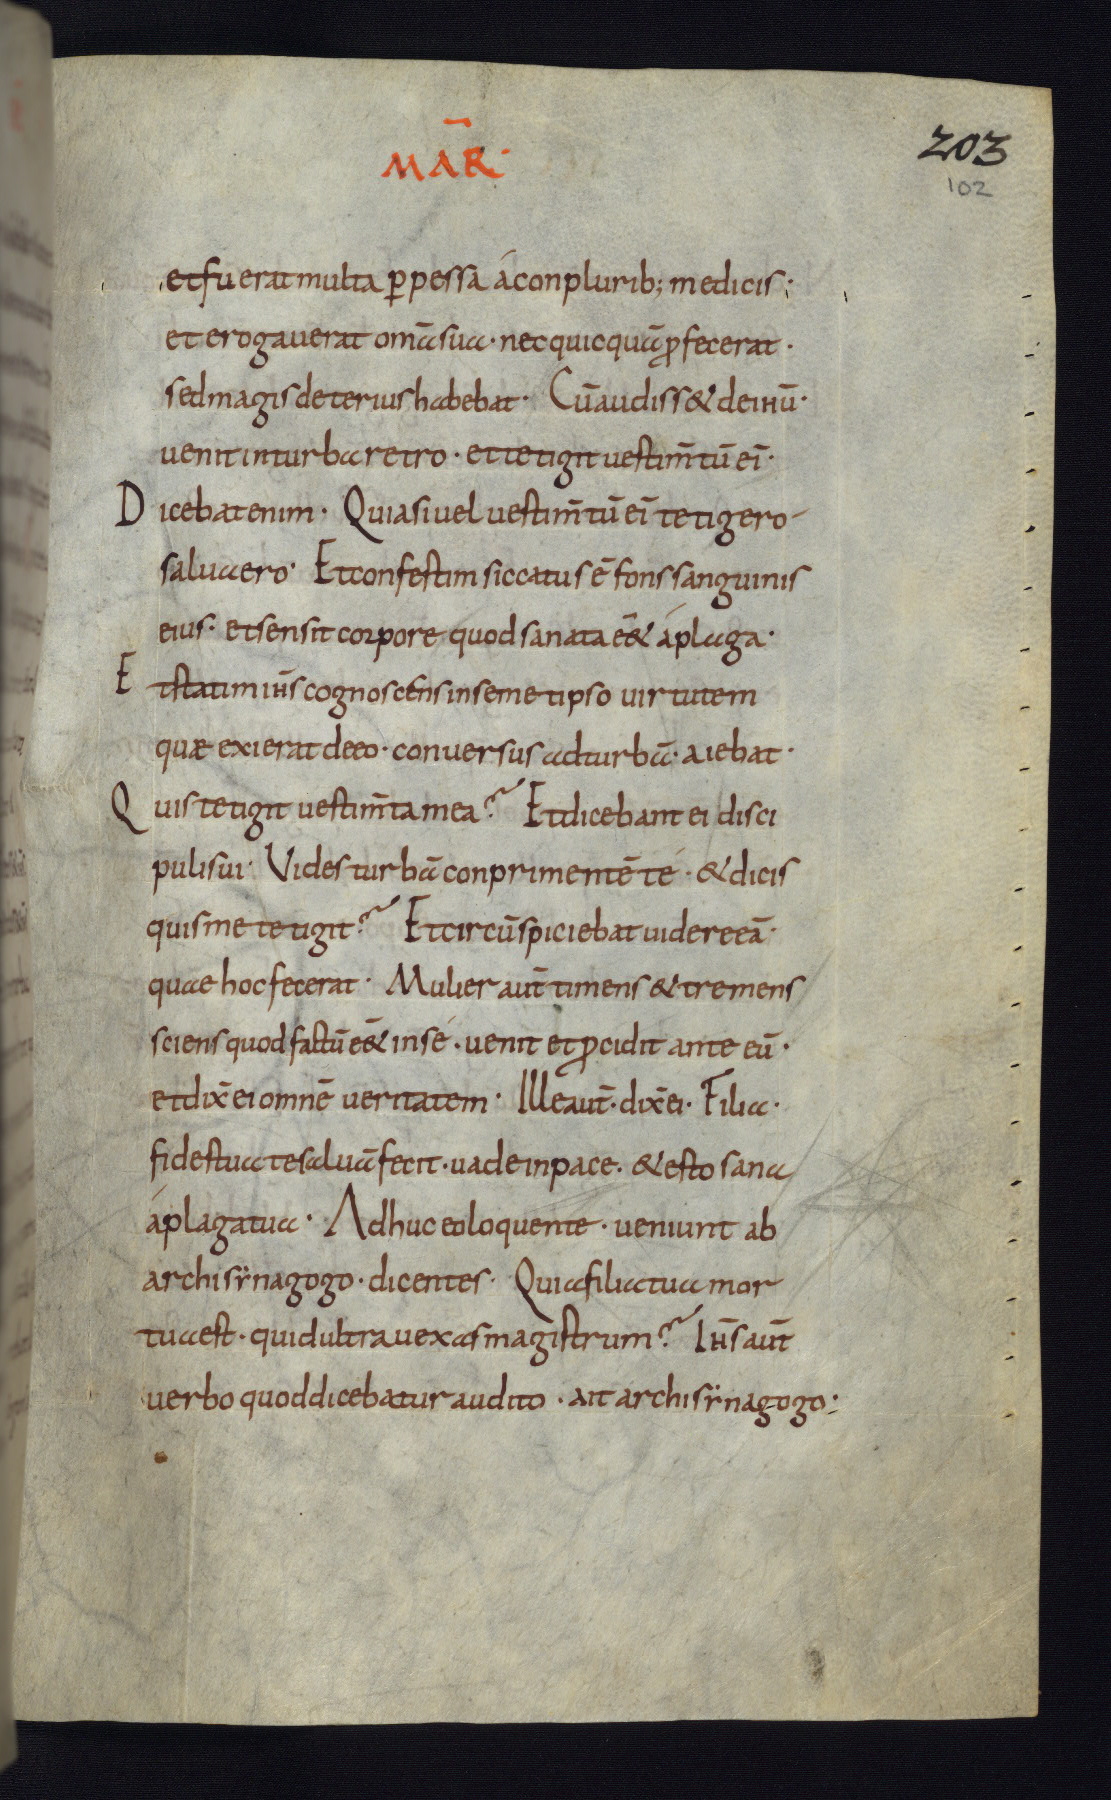 MAR̄·
203
102
et fuerat multa ꝑpessa á conplurib; medicis;
et erogauerat om̄a sua · nec quicquā ꝓfecerat ·
sed magis deterius habebat · Cū audiss& de ih̄u ·
uenit in turba retro · et tetigit uestim̄tū ei̅ ·
Dicebat enim · Quia si uel uestim̄tū ei̅ tetigero
salua ero · Et confestim siccatus ē fons sanguinis
eius · et sensit corpore quod sanata eē& á plaga ·
Et statim ih̄s cognoscens in semetipso uirtutem
quæ exierat de eo · conuersus ad turbā · aiebat ·
Quis tetigit uestim̄ta mea? Et dicebant ei disci
puli sui · Vides turbā conprimentē té · & dicis
quis me tetigit? Et circūspiciebat uidere eā ·
quae hoc fecerat · Mulier aut̄ timens & tremens
sciens quod factū eē& in sé · uenit et ꝓcidit ante eū ·
et dix̄ ei omnē ueritatem · Ille aut̄ · dix̄ ei · Filia ·
fides tua te saluā fecit · uade in pace · & esto sana
á plaga tua · Adhuc eo loquente · ueniunt ab
archisẏnagogo · dicentes · Quia filia tua mor
tua est · quid ultra uexas magistrum? Ih̄s aut̄
uerbo quod dicebatur audito · ait archisẏnagogo: